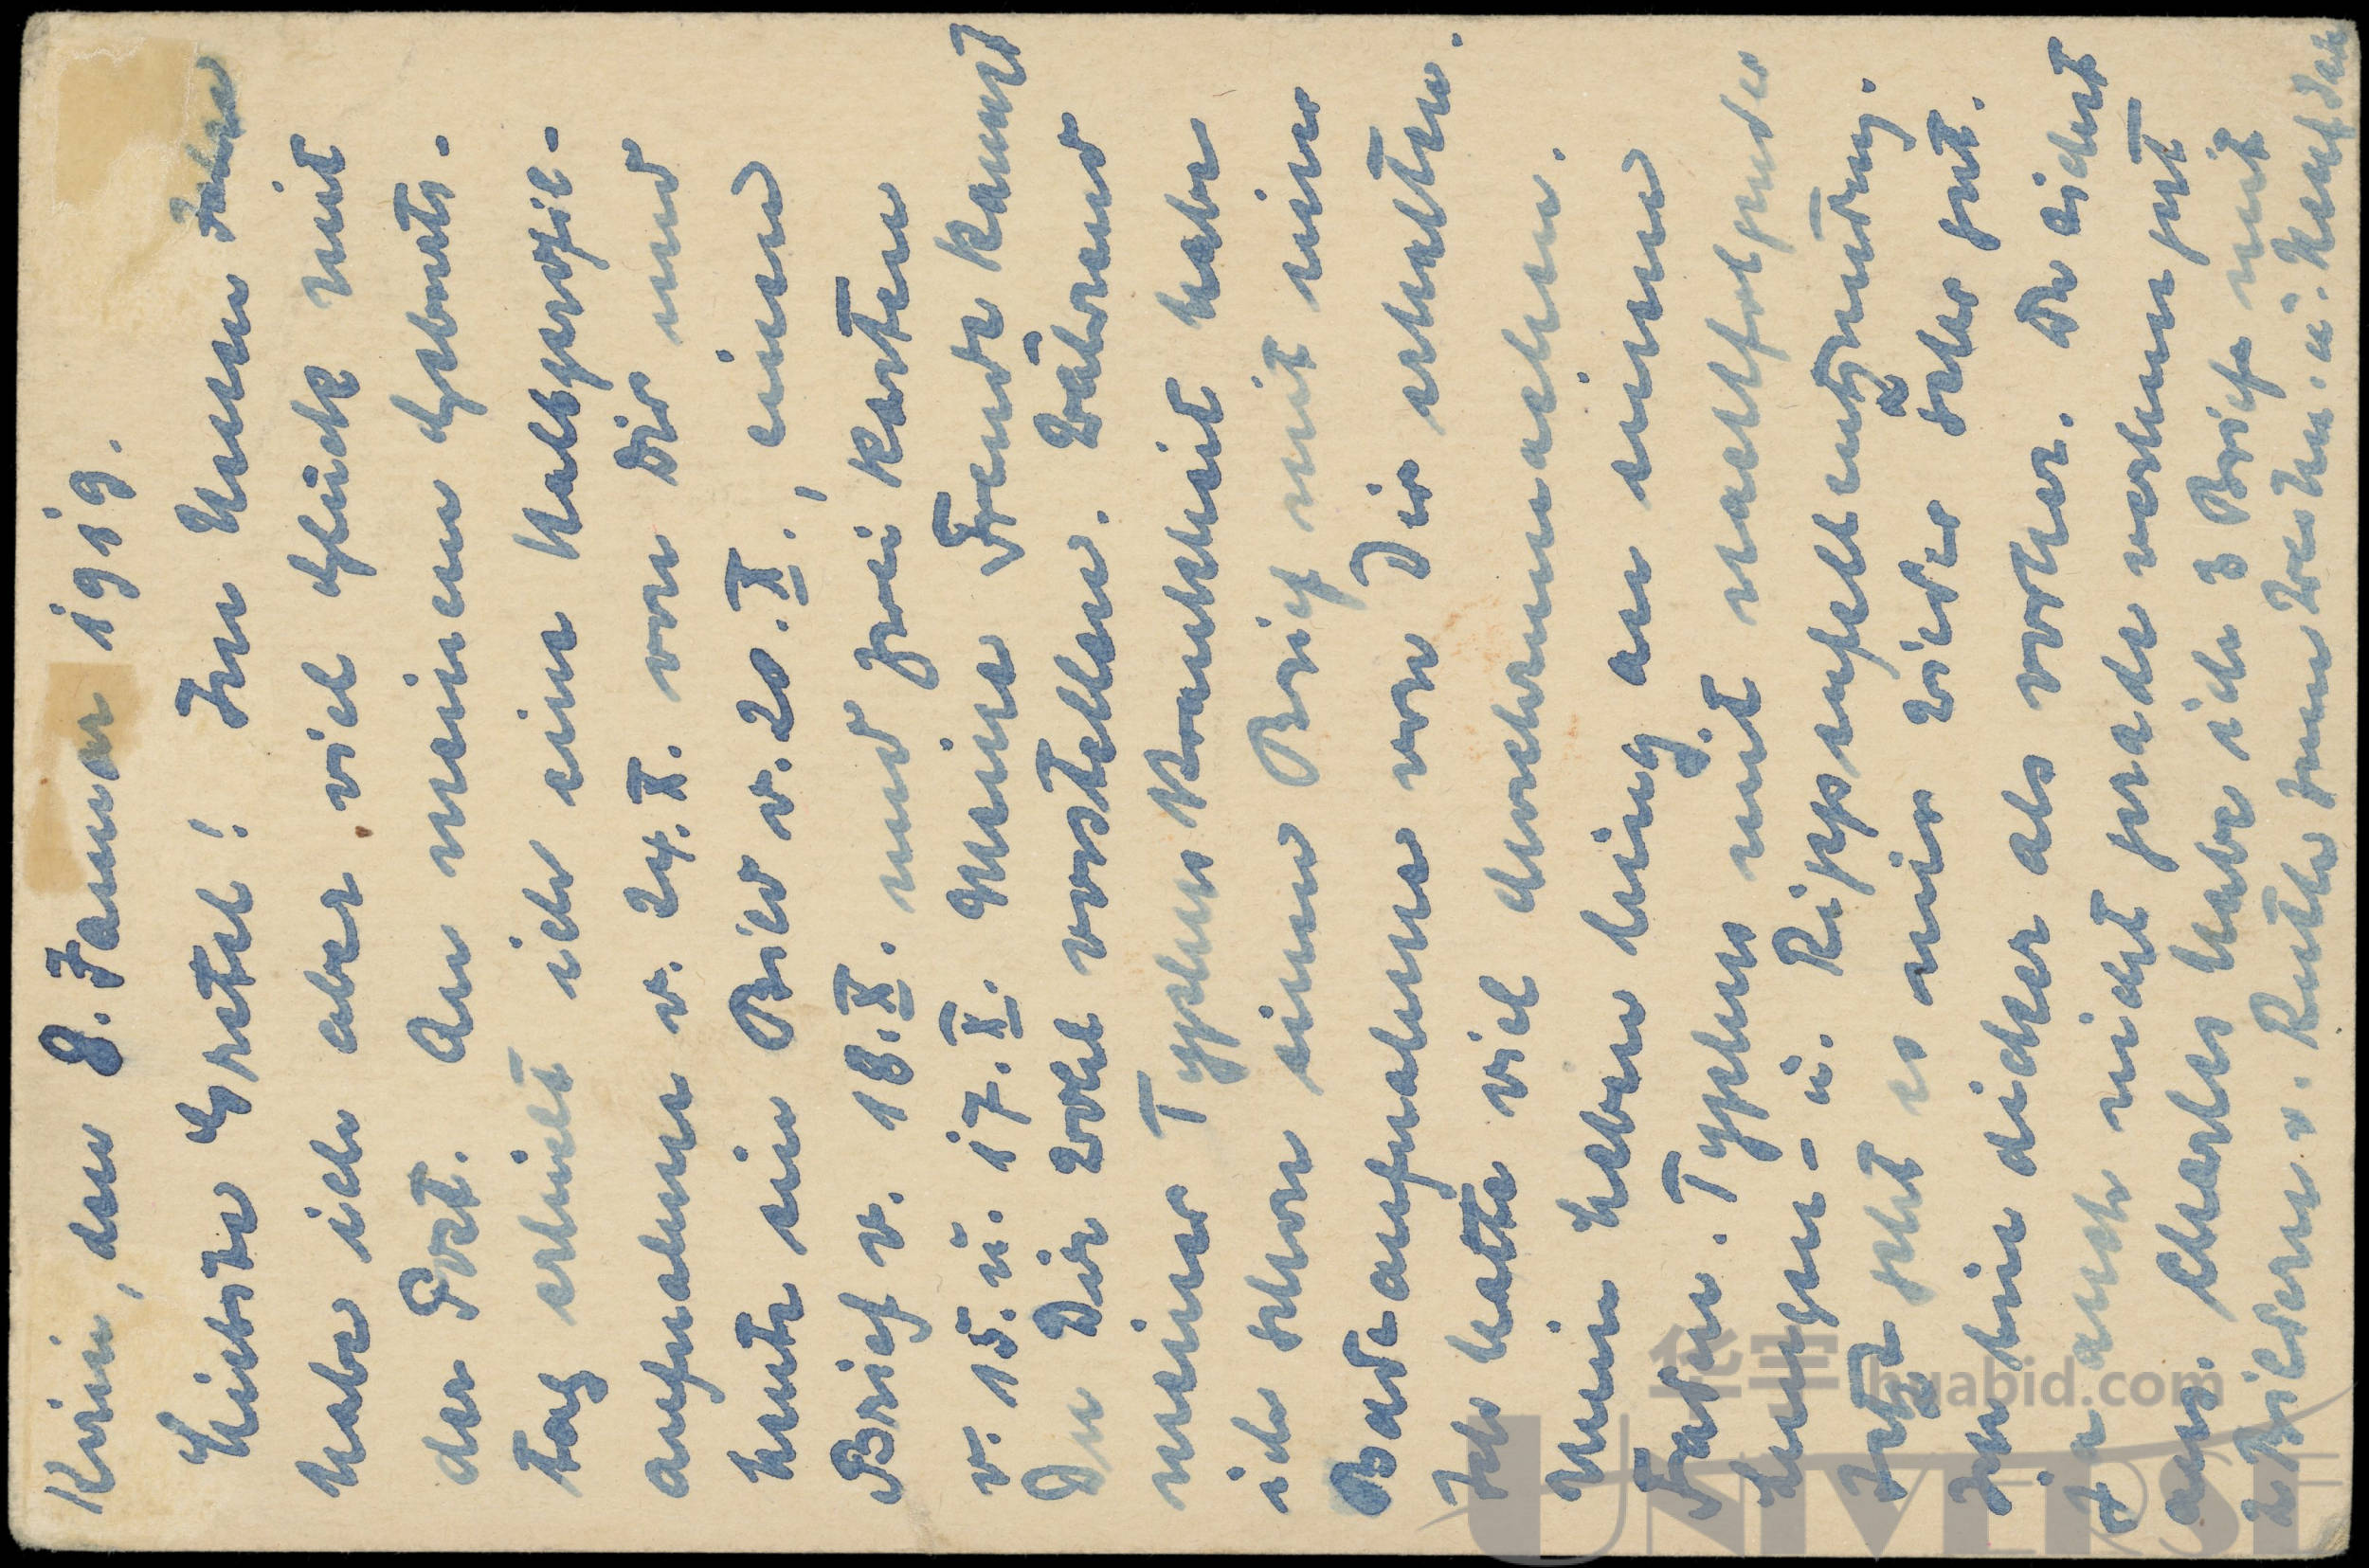 Kurin, den 8. Januar 1919.
Liebste Gretel! Im neuen Jahre
habe ich aber viel Glück mit
der Post. An meinem Geburts-
tag erhielt ich eine
aufnahme v. 24. X. von Dir und
heute ein Bild v. 20. X., einen
Brief v. 18. X. und zwei Karten
v. 15. u. 17. X. Meine Freude kannst
Du Dir wohl vorstellen. Während
meiner Typhus Krankheit habe
ich schon einen Brief mit einer
Badeaufnahme von Dir erhalten.
Ich hatte viel durchzumachen.
Mein Leben hing an einem
Faden. Typhus mit nachfolgender
Lungen- u. Rippenfellentzündung.
Jetzt geht es mir wieder sehr gut.
Ich bin dicker als vorher. Du siehst
ja auch nicht gerade verhungert
aus. habe ich 3 Briefe mit
2 Bildern v. Ruth